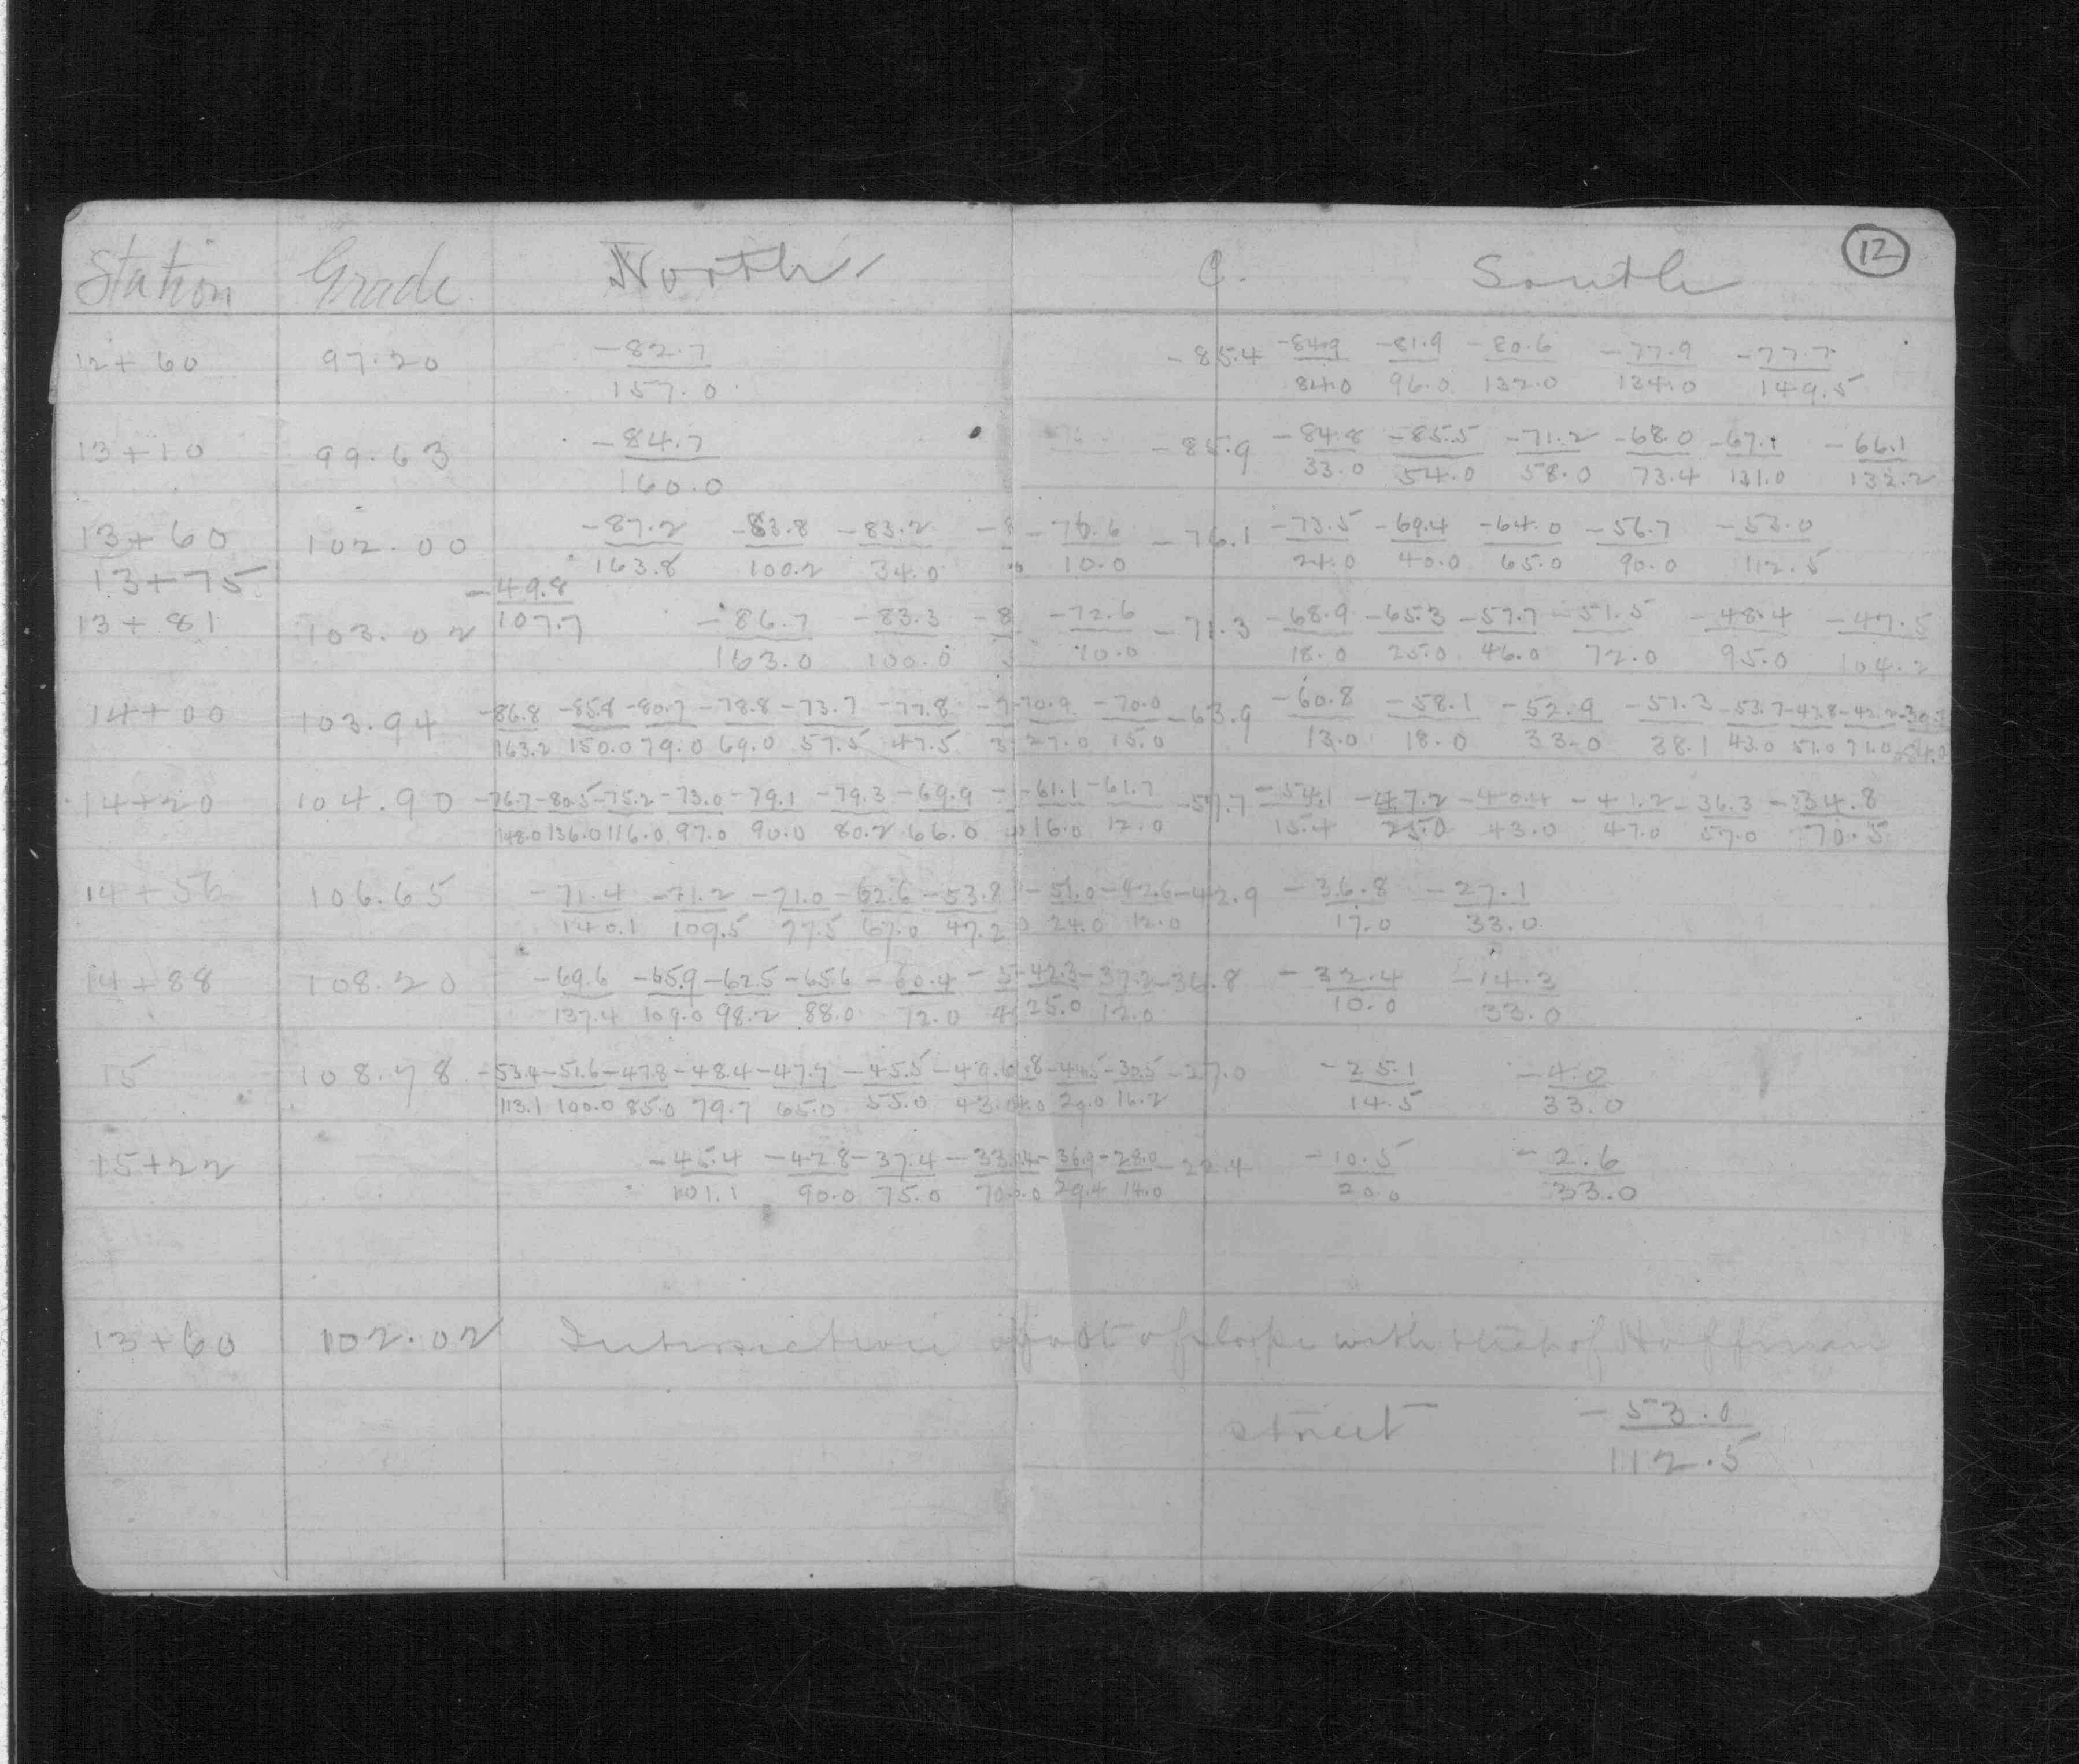 12
Station Grade North C. South
12+60 97.20 -82.7/157.0 -85.4 -84.9/84.0 -81.9/96.0 -80.6/132.0 -77.9/134.0 -77.7/149.5
13+10 99.63 -84.7/160.0 -85.9 -84.8/33.0 -85.5/54.0 -71.2/58.0 -68.0/73.4 -67.1/131.0 -66.1/132.2
13+60 102.00 -87.2/163.8 -83.8/100.2 -83.2/34.0 -76.6/10.0 -76.1 -73.5/24.0 -69.4/40.0 -64.0/65.0 -56.7/90.0 -53.0/112.5
13+75 -49.8/107.7
13+81 103.02 -86.7/163.0 -83.3/100.0 -72.6/10.0 -71.3 -68.9/18.0 -65.3/25.0 -57.7/46.0 -51.5/72.0 -48.4/95.0 -47.5/104.2
14+00 103.94 -86.8/163.2 -85.8/150.0 -80.7/79.0 -78.8/69.0 -73.7/57.5 -77.8/47.5 -70.9/27.0 -70.0/15.0 -63.9 -60.8/13.0 -58.1/18.0 -52.9/33.0 -51.3/38.1 -53.7/43.0 -43.8/51.0 -42.2/71.0
14+20 104.90 -76.7/148.0 -80.5/136.0 -75.2/116.0 -73.0/97.0 -79.1/90.0 -79.3/80.2 -69.9/66.0 -61.1/16.0 -61.7/12.0 -57.7 -54.1/15.4 -47.2/25.0 -40.4/43.0 -41.2/47.0 -36.3/57.0 -34.8/70.5
14+56 106.65 -71.4/140.1 -71.2/109.5 -71.0/77.5 -62.6/67.0 -53.8/47.2 -51.0/24.0 -42.6/12.0 -42.9 -36.8/17.0 -27.1/33.0
14+88 108.20 -69.6/137.4 -65.9/109.0 -62.5/98.2 -65.6/88.0 -60.4/72.0 -42.3/25.0 -37.2/12.0 -36.8 -32.4/10.0 -14.3/33.0
15 108.78 -53.4/113.1 -51.6/100.0 -47.8/85.0 -48.4/79.7 -47.7/65.0 -45.5/55.0 -49.6/43.0 -44.5/29.0 -30.5/16.2 -27.0 -25.1/14.5 -4.0/33.0
15+22 -45.4/101.1 -42.8/90.0 -37.4/75.0 -36.9/29.4 -28.0/14.0 -22.4 -10.5/20.0 -2.6/33.0
13+60 102.02 Intersection of foot of slope with street of Hoffman
street -53.0/112.5